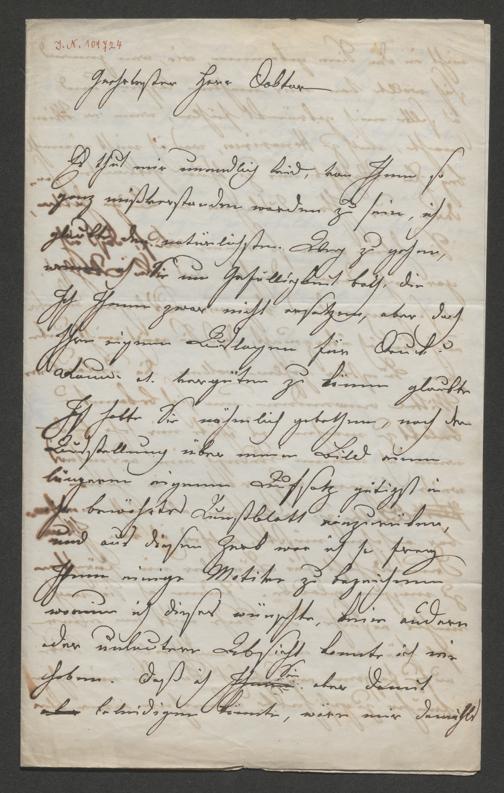 J. N. 101724
Geehrtester Herr Doktor
Es thut mir unendlich leid, von Ihnen so
ganz mißverstanden worden zu sein, ich
glaubte den natürlichsten Weg zu gehen,
wenn ich Sie um Gefälligkeit bath, die
ich Ihnen zwar nicht ersetzen, aber doch
Ihre eigenen Auslagen für Druck
et. vergüten zu können glaubte
Ich hatte Sie nähmlich gebethen, nach der
Ausstellung über mein Bild einen
längeren eigenen Aufsatz gütigst in
Ihr bewährtes Kunstblatt einzurücken,
und aus diesem war ich so frey
Ihnen einige Motive zu bezeichnen
warum ich dieses wünschte, keine andere
oder unlautere Absicht konnte ich nie
haben. Daß ich Sie aber damit
beleidigen könnte, wäre mir